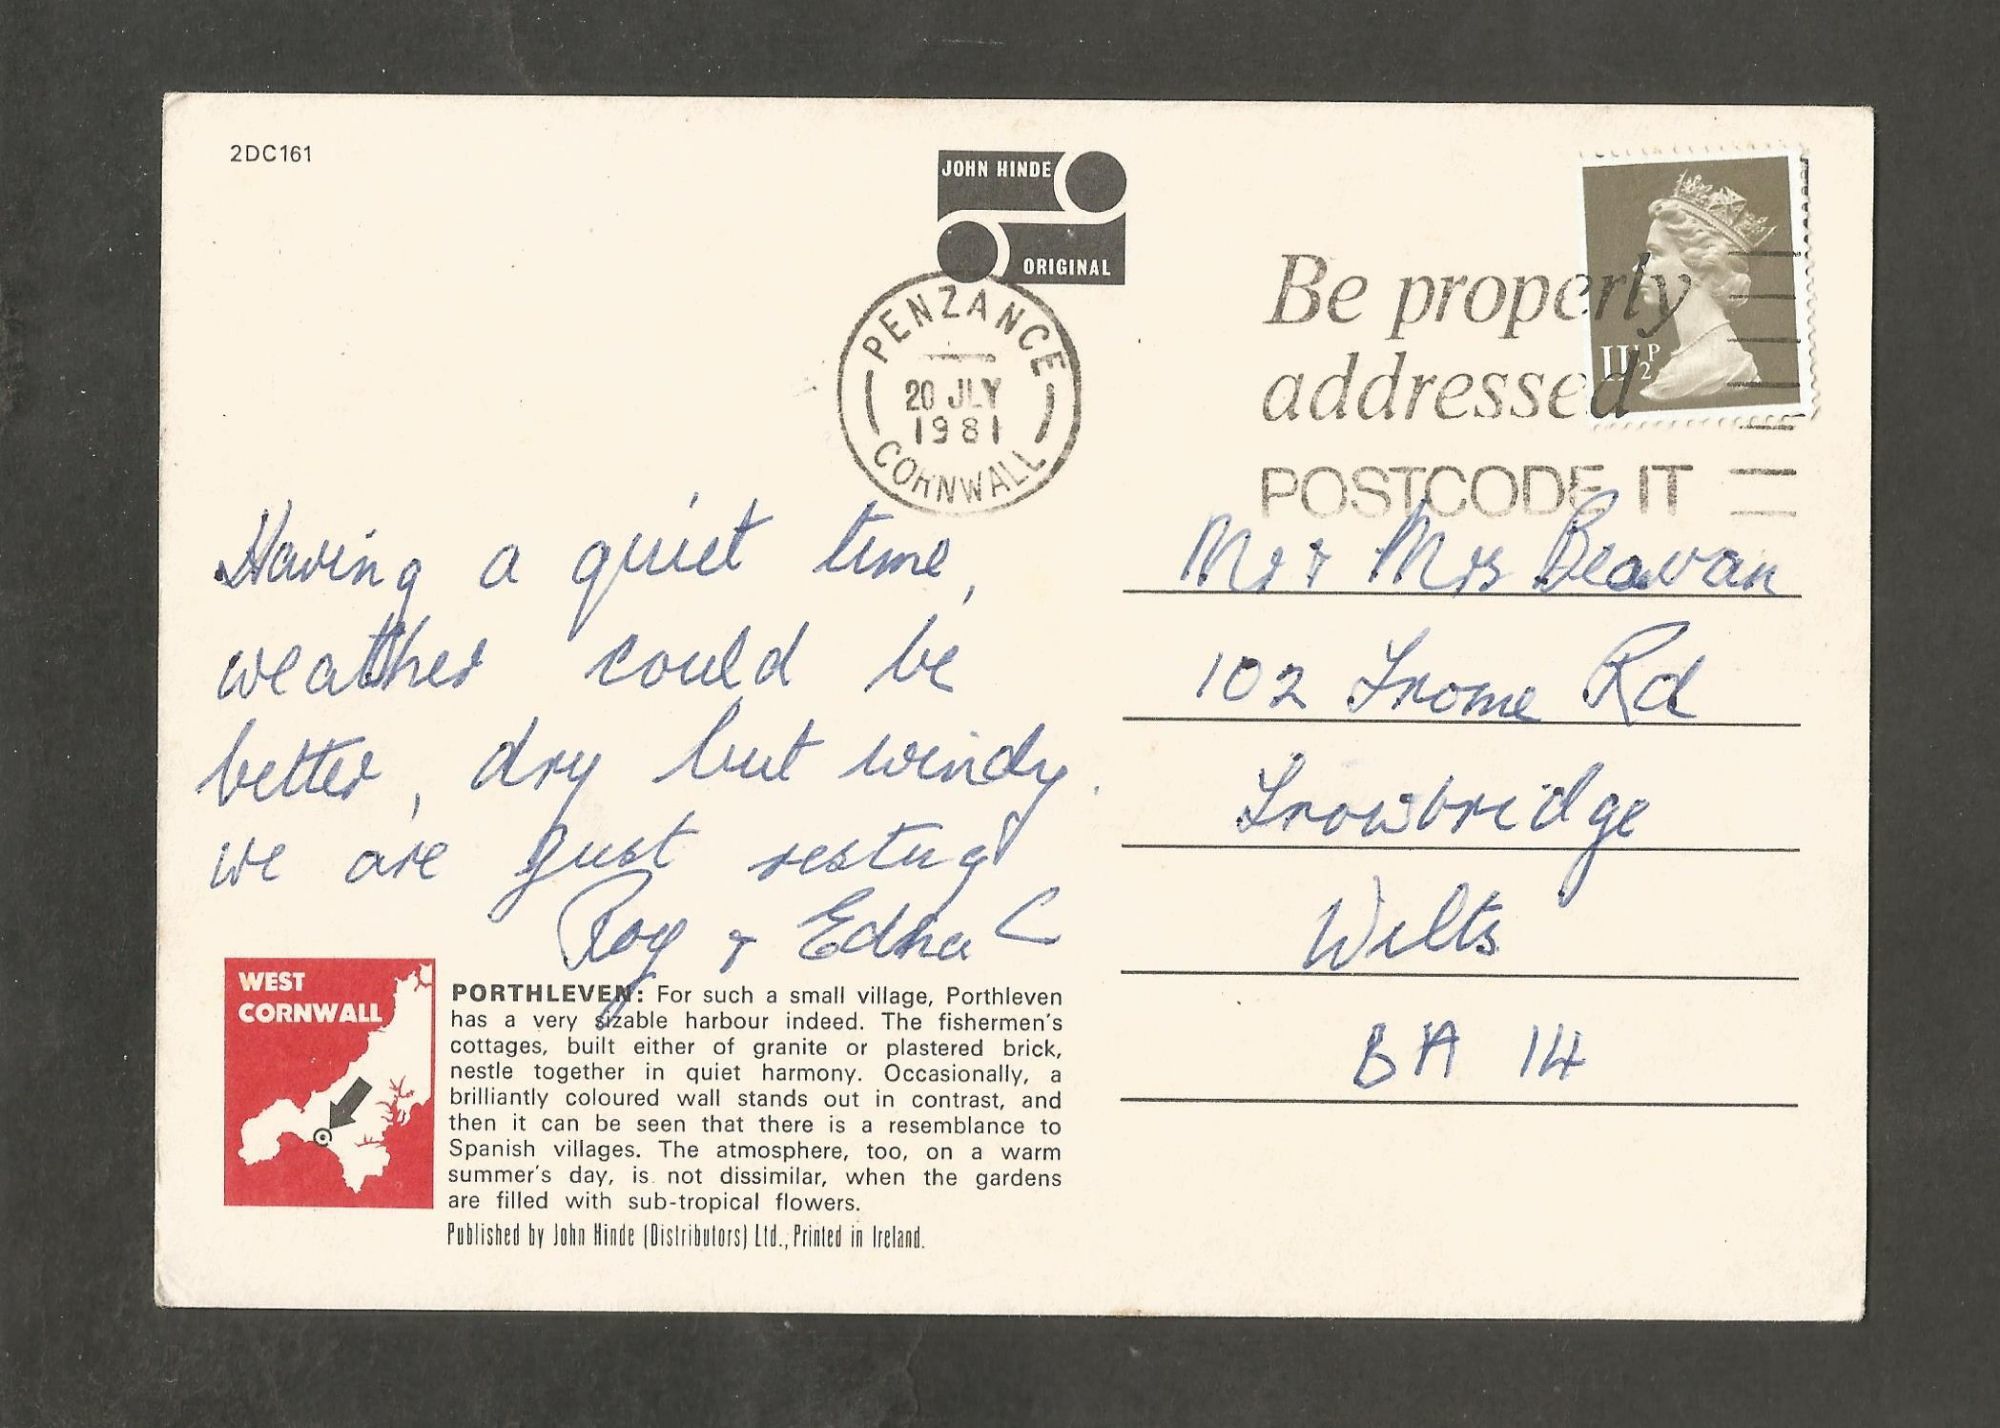 2DC161
JOHN HINDE
ORIGINAL
PENZANCE
20 JLY
1981
CORNWALL
Be properly
addressed
POSTCODE IT
11½P
Having a quiet time,
weather could be
better, dry but windy.
we are just restug
Roy & Edna C
Mr & Mrs Beavan
102 Frome Rd
Trowbridge
Wilts
BA 14
WEST
CORNWALL
PORTHLEVEN: For such a small village, Porthleven
has a very sizable harbour indeed. The fishermen's
cottages, built either of granite or plastered brick,
nestle together in quiet harmony. Occasionally, a
brilliantly coloured wall stands out in contrast, and
then it can be seen that there is a resemblance to
Spanish villages. The atmosphere, too, on a warm
summer's day, is not dissimilar, when the gardens
are filled with sub-tropical flowers.
Published by John Hinde (Distributors) Ltd., Printed in Ireland.